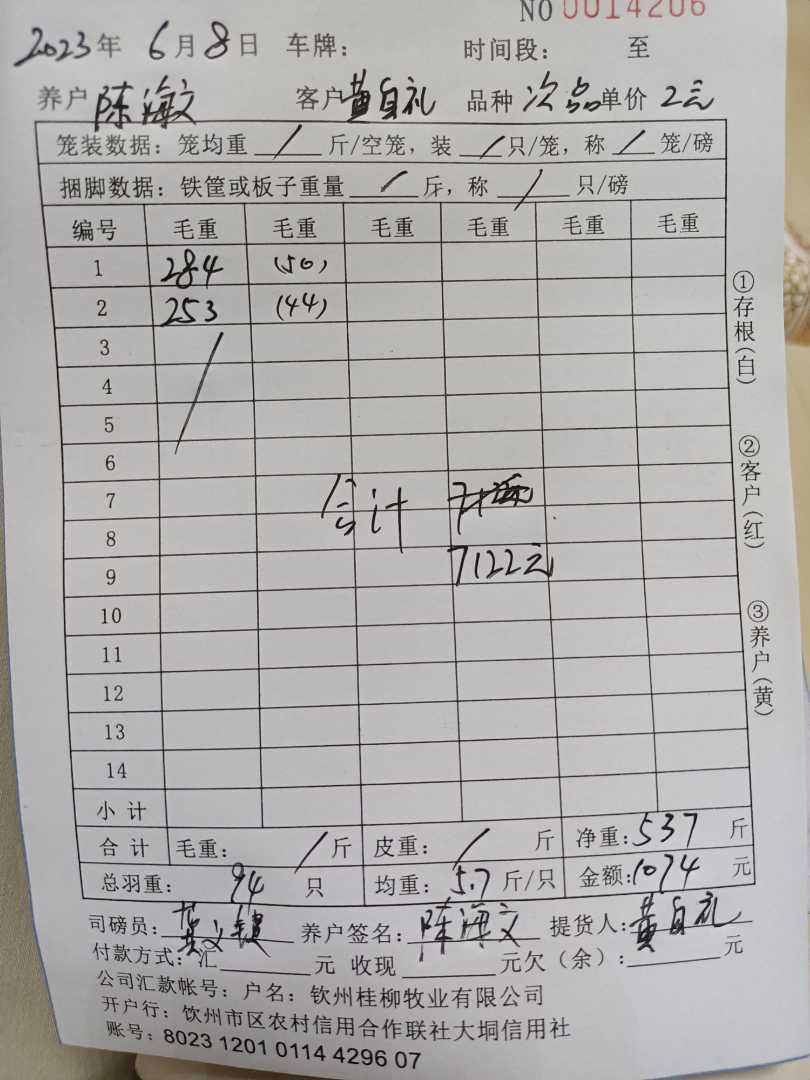 NO 0014206
2023年 6月8日 车牌： 时间段： 至
养户 陈海文 客户 黄自礼 品种 次品 单价 2元
笼装数据：笼均重 / 斤/空笼，装 / 只/笼，称 / 笼/磅
捆脚数据：铁筐或板子重量 / 斤，称 / 只/磅
编号 毛重 毛重 毛重 毛重 毛重 毛重
1 284 (50)
2 253 (44)
3
4
5
6
7 合计
8
9 7122元
10
11
12
13
14
小计
合计 毛重： / 斤 皮重： / 斤 净重：537 斤
总羽重： 94 只 均重：5.7 斤/只 金额：1074 元
司磅员： 养户签名：陈海文 提货人：黄自礼
付款方式：汇 元 收现 元欠（余）： 元
公司汇款帐号：户名：钦州桂柳牧业有限公司
开户行：钦州市区农村信用合作联社大垌信用社
账号：8023 1201 0114 4296 07
①存根（白）
②客户（红）
③养户（黄）